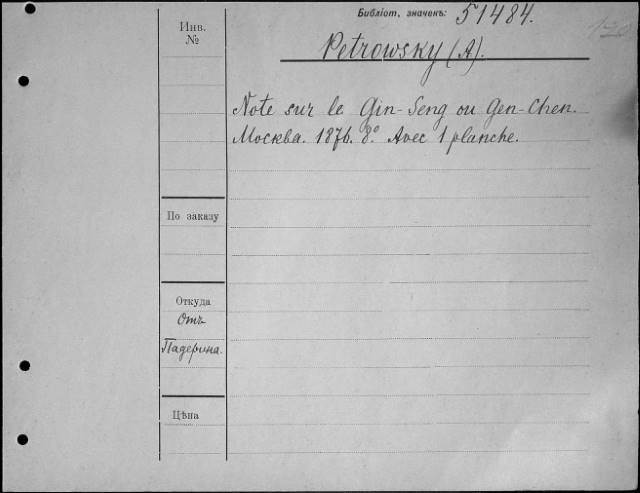 Библіот, значекъ: 51484.
Инв.
№
Petrowsky (A).
Note sur le Gin-Seng ou Gen-Chen.
Москва. 1876. 8º. Avec 1 planche.
По заказу
Откуда
Отъ
Падерина.
Цѣна